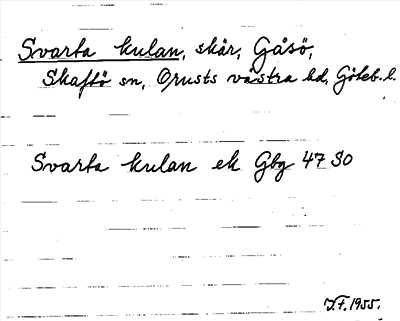 Svarta kulan, skär, Gåsö,
Skaftö sn, Orusts västra hd, Göteb. l.
Svarta kulan ek Gbg 47 SO
J.F. 1955.